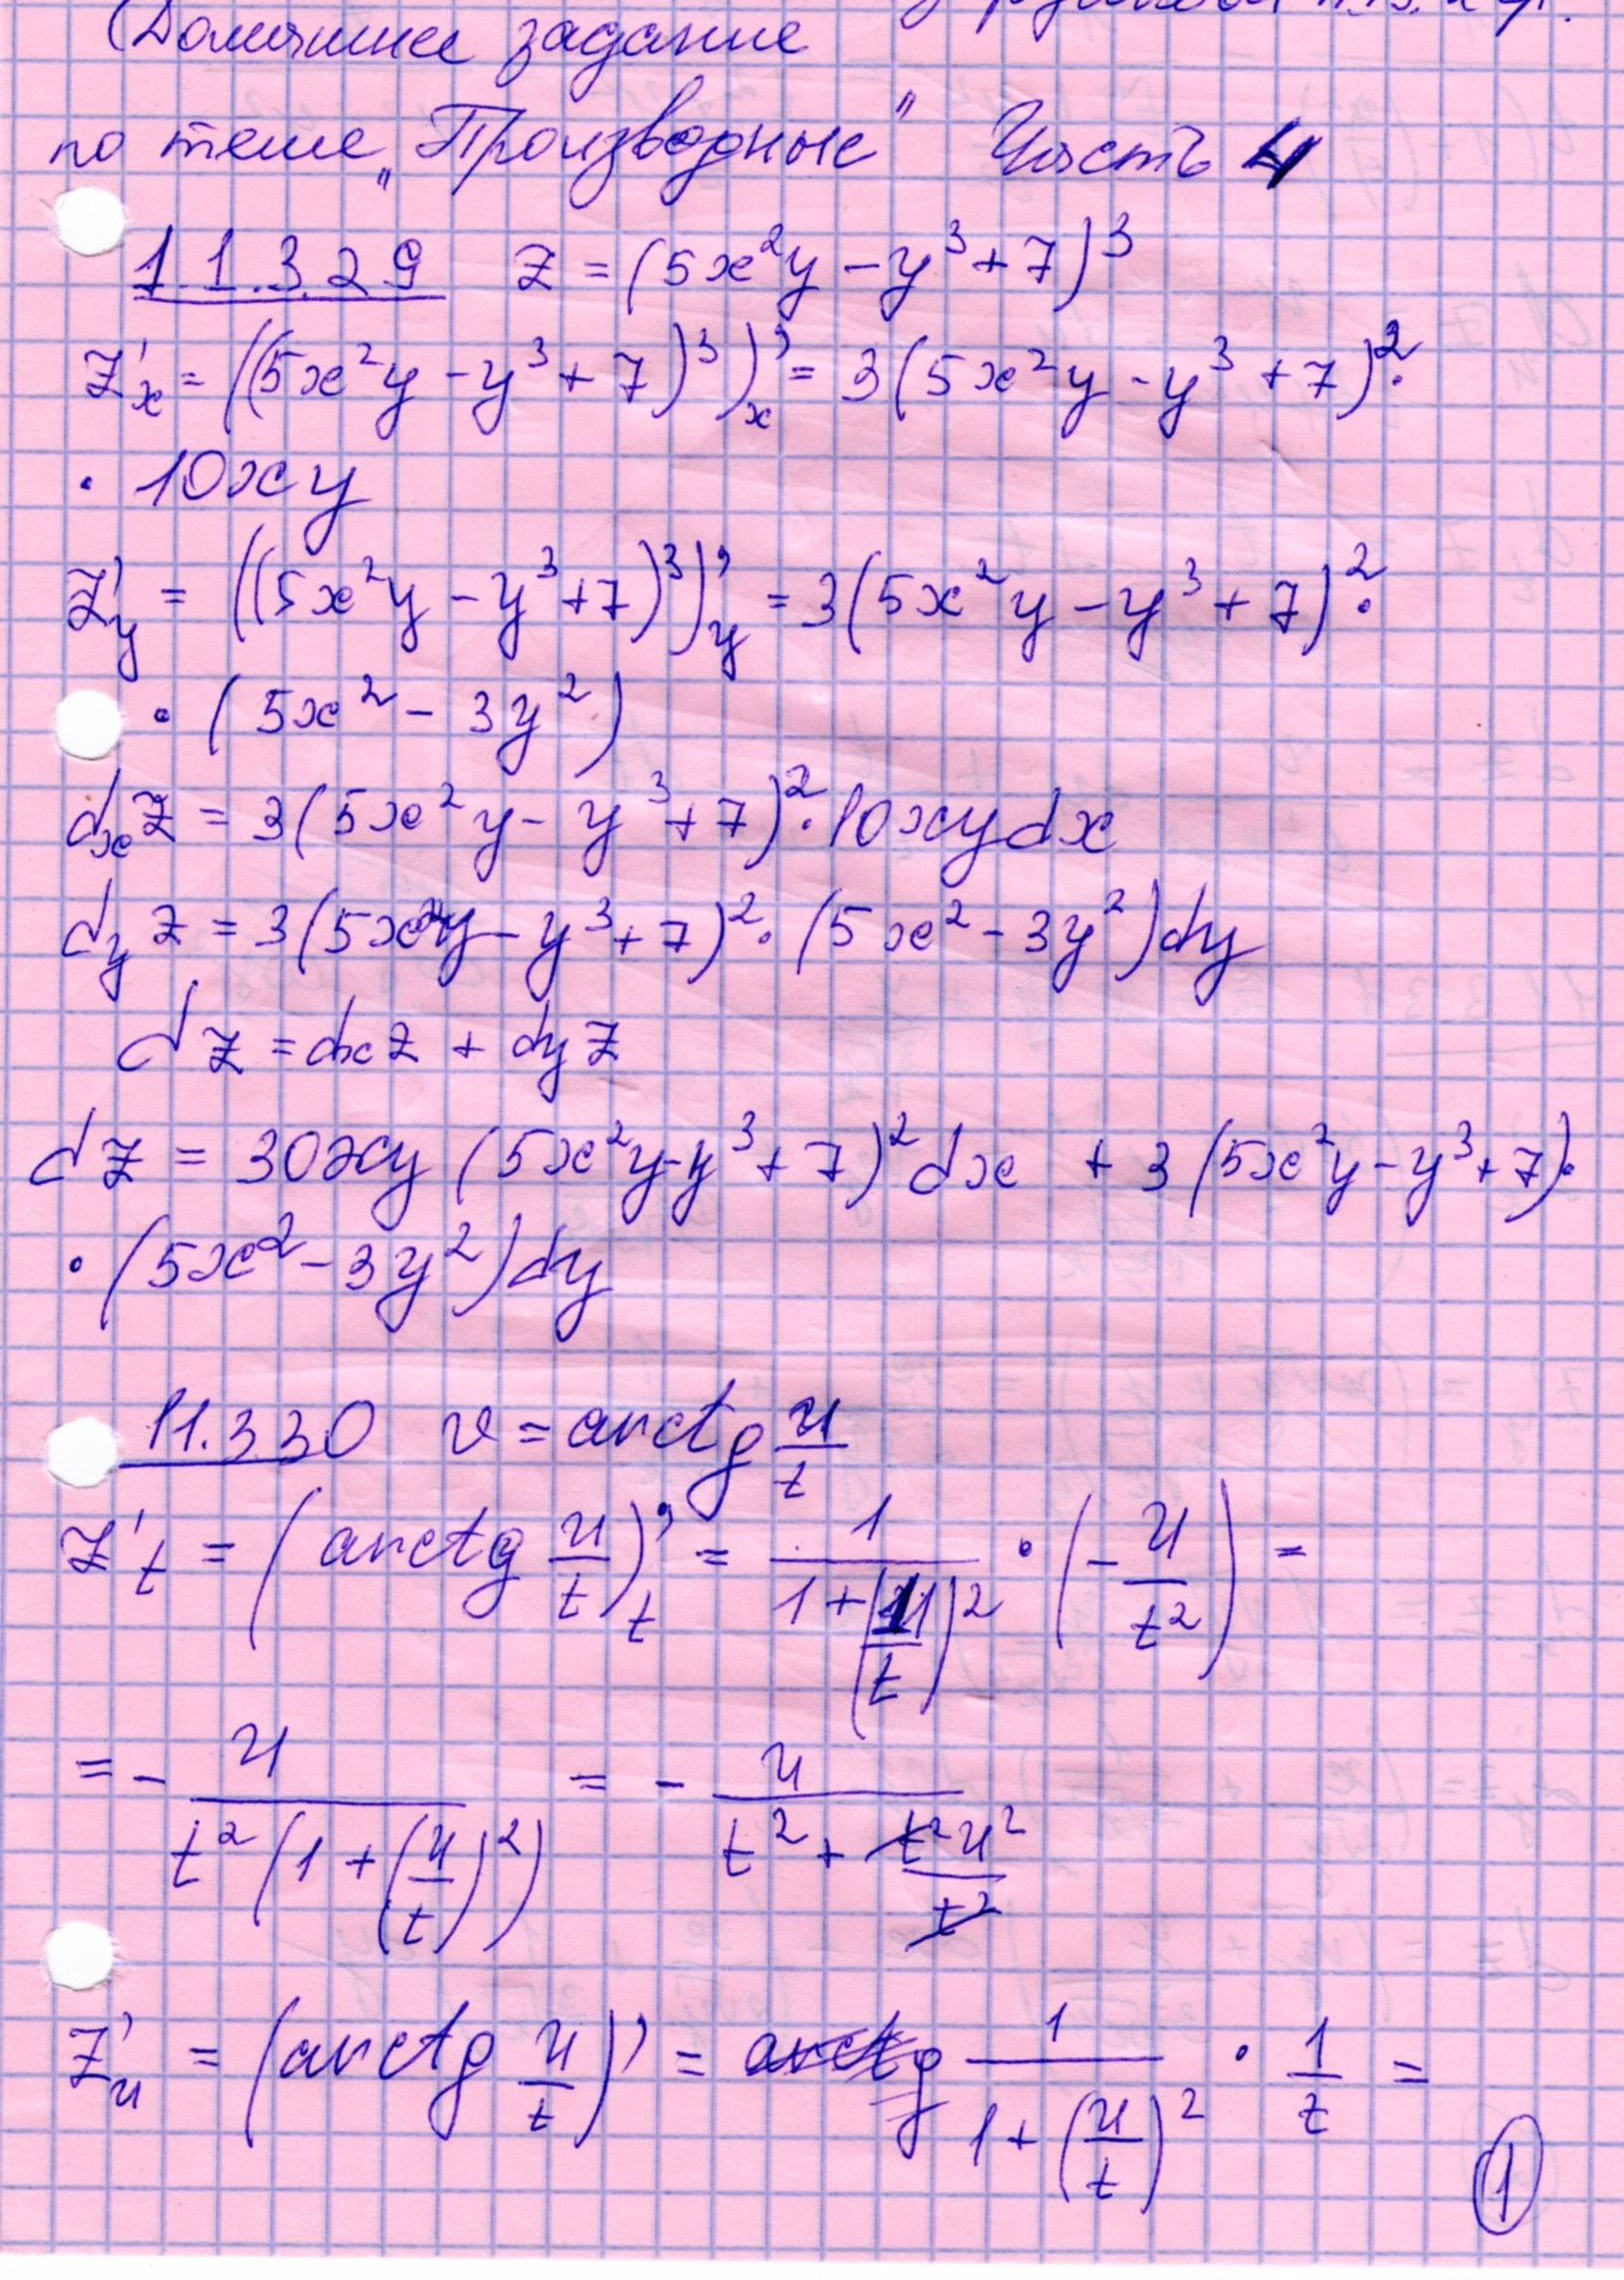 Домашнее задание
по теме "Производные" Часть 4
11.3.29 z = (5x²y - y³ + 7)³
z'ₓ = ((5x²y - y³ + 7)³)'ₓ = 3(5x²y - y³ + 7)² ·
· 10xy
z'_y = ((5x²y - y³ + 7)³)'_y = 3(5x²y - y³ + 7)² ·
· (5x² - 3y²)
dₓz = 3(5x²y - y³ + 7)² · 10xydx
d_y z = 3(5x²y - y³ + 7)² · (5x² - 3y²)dy
dz = dₓz + d_y z
dz = 30xy (5x²y - y³ + 7)² dx + 3(5x²y - y³ + 7) ·
· (5x² - 3y²)dy
11.3.30 v = arctg u/t
z'_t = (arctg u/t)'_t = 1/(1 + (u/t)²) · (-u/t²) =
= - u/(t²(1 + (u/t)²)) = - u/(t² + t²u²/t²)
z'_u = (arctg u/t)' = 1/(1 + (u/t)²) · 1/t =
1